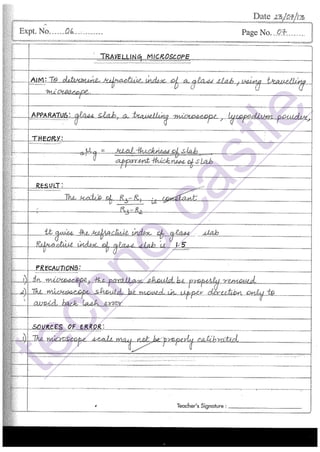 Date 23/07/13
Expt. No. 06
Page No. 07
TRAVELLING MICROSCOPE
AIM: To determine refractive index of a glass slab, using travelling
microscope.
APPARATUS: glass slab, a travelling microscope, lycopodium powder,
THEORY:
aμg = real thickness of slab
apparent thickness of slab
RESULT:
The ratio of R3-R1 is constant.
R3-R2
It gives the refractive index of glass slab
Refractive index of glass slab is 1.5
PRECAUTIONS:
1) In microscope, the parallax should be properly removed.
2) The microscope should be moved in upper direction only to
avoid back lash error.
SOURCES OF ERROR:
1) The microscope scale may not be properly calibrated.
Teacher's Signature :
techno castle